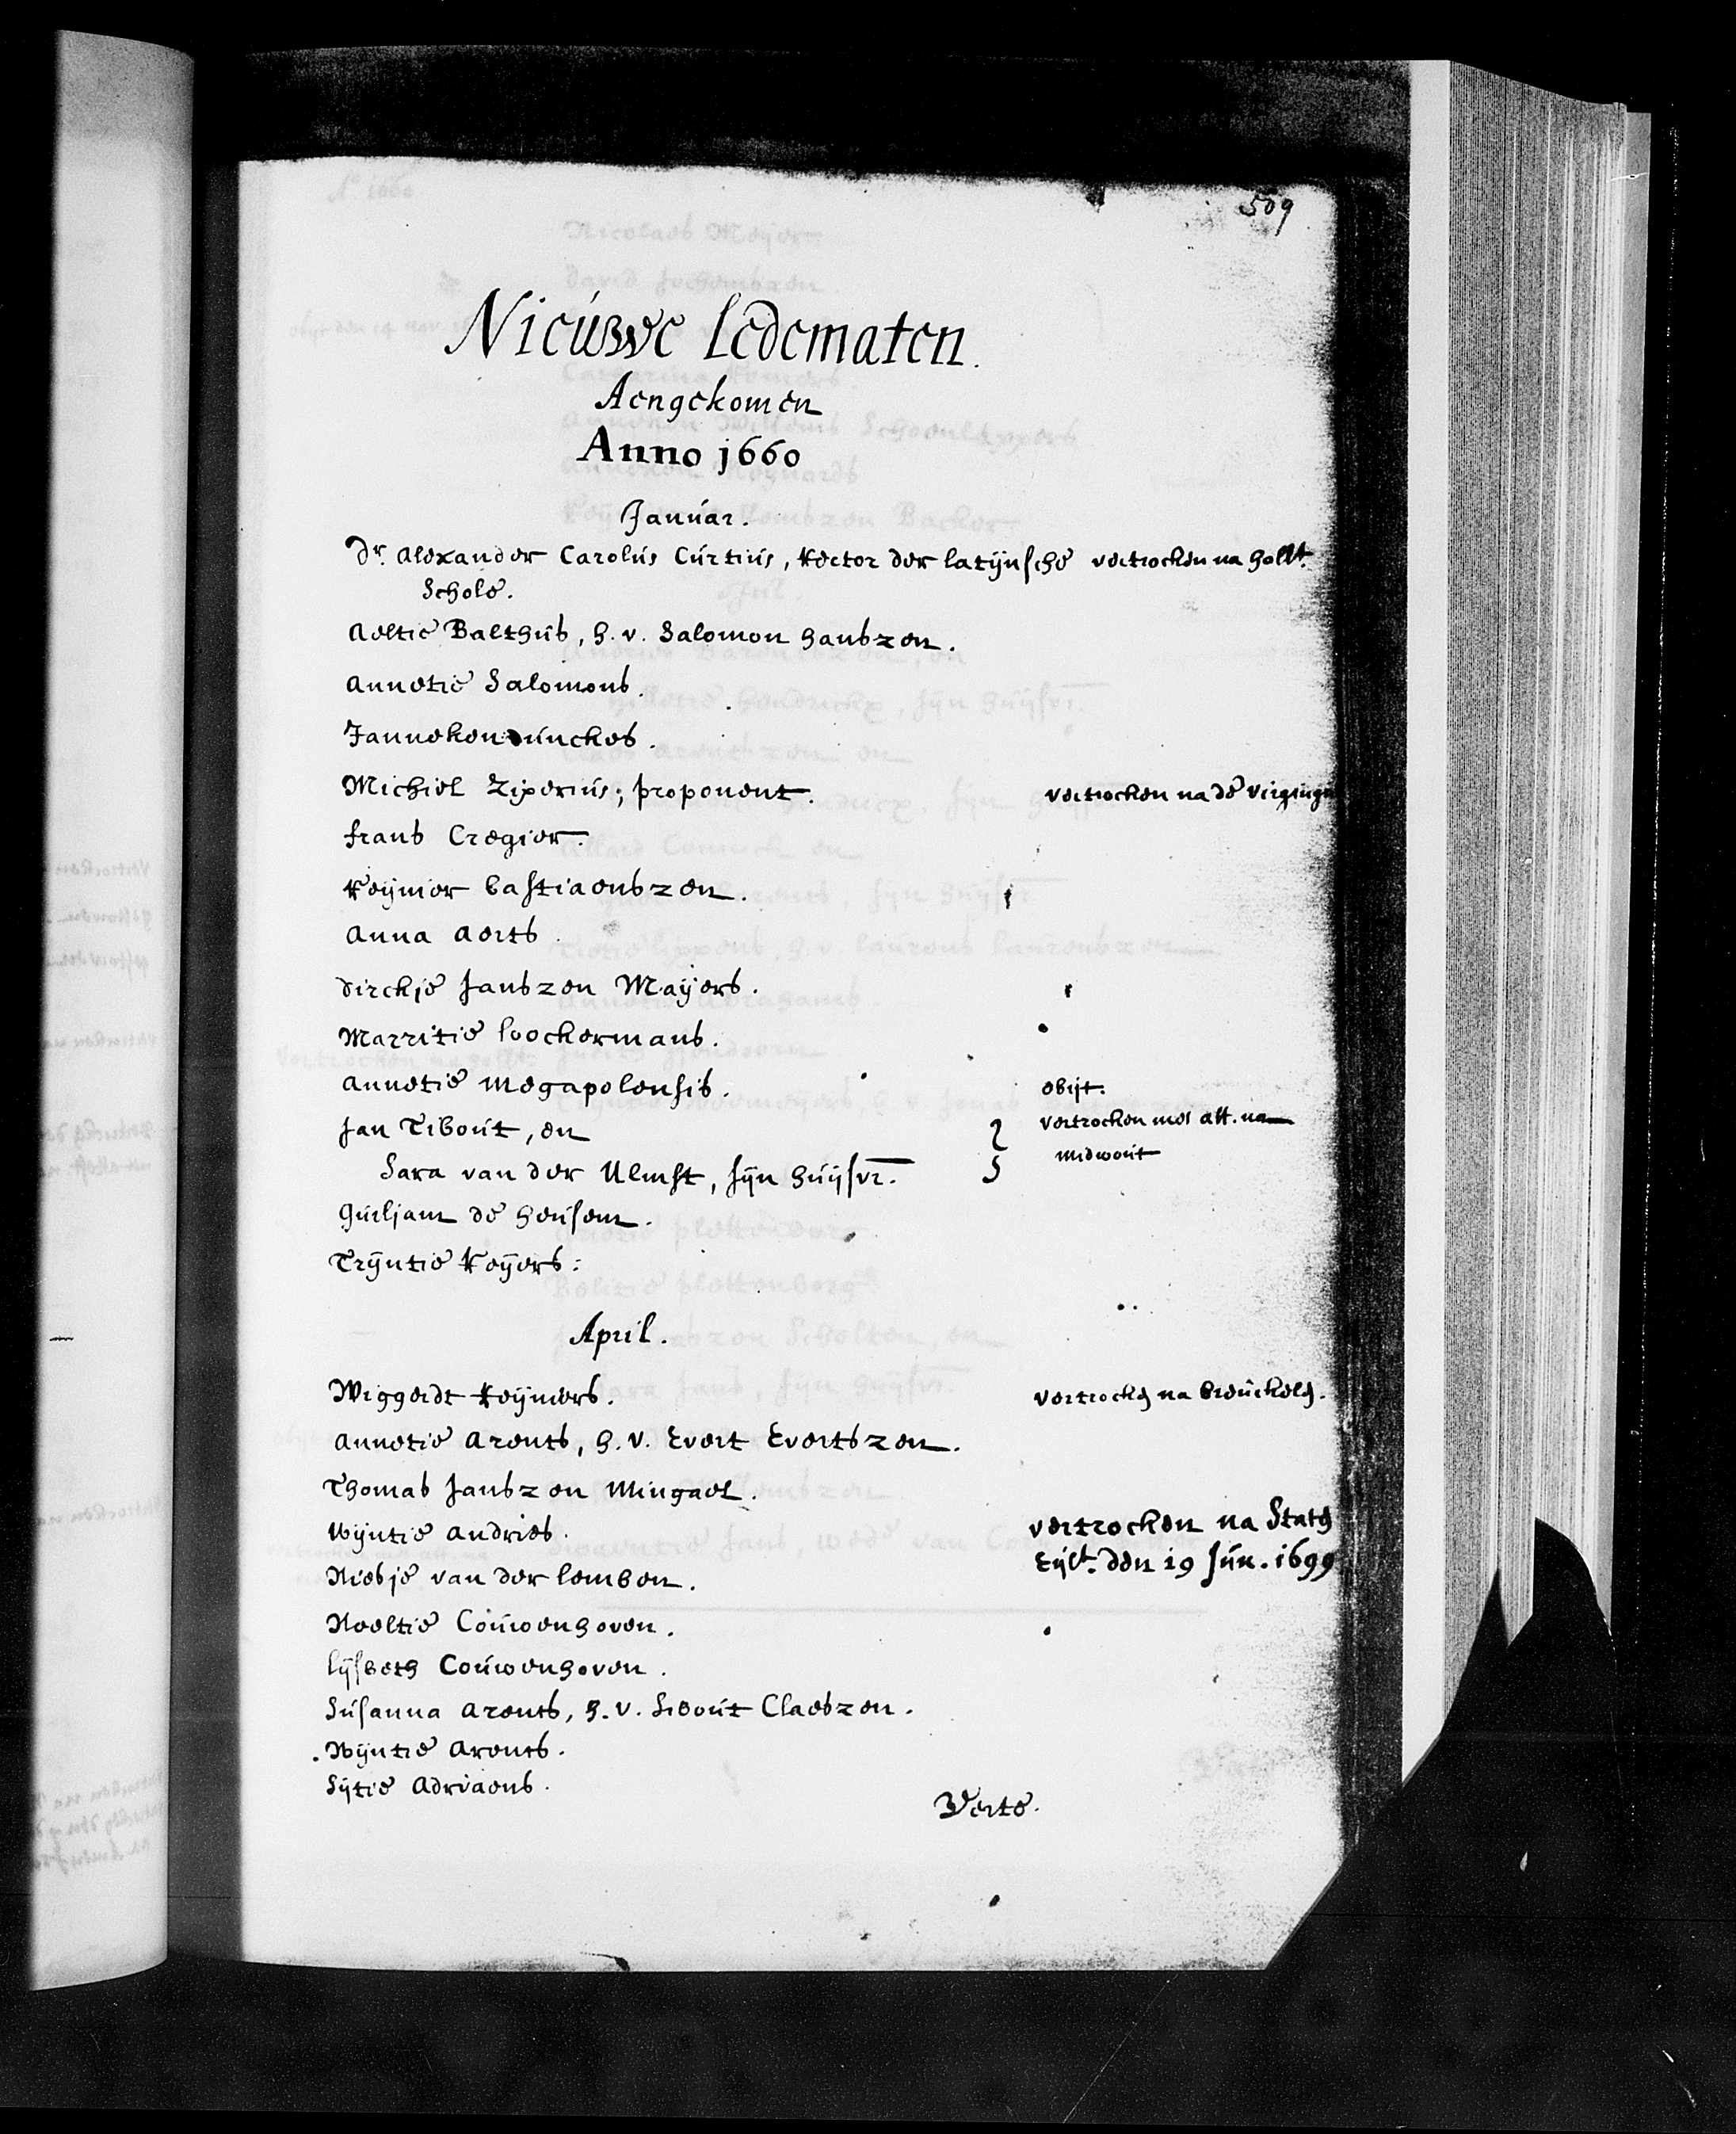 509
Nieuwe Ledematen.
Aengekomen
Anno 1660
Januar.
Dr. Alexander Carolus Curtius, Rector der latijnsche vertrocken na Hollt.
Schole.
Aeltie Balthus, h. v. Salomon Hanszen.
Annetie Salomons.
Janneken Dunckes.
Michiel Ziperius, proponent. vertrocken na de Virgin
Frans Cregier.
Reijnier Bastiaenszen.
Anna Aerts.
Dirckje Janszen Maÿers.
Marritie Loockermans.
Annetie Megapolensis. obijt.
Jan Tibout, en vertrocken met att. na
Sara van der Ulmst, sijn huijsvr. midwout
Guiljam de Heusem.
Trÿntie Reÿers.
April.
Wiggerdt Reijniers. vertrocken na Breuckelen.
Annetie Arents, h. v. Evert Evertszen.
Thomas Janszen Mingael.
Wijntie Andries. vertrocken na Staten
Eijlt. den 19 Jun. 1699
Niesje van der Lemben.
Neeltie Couwenhoven.
Lijsbeth Couwenhoven.
Susanna Arents, h. v. Sibout Claeszen.
Wijntie Arents.
Sijtie Adriaens.
Verte.